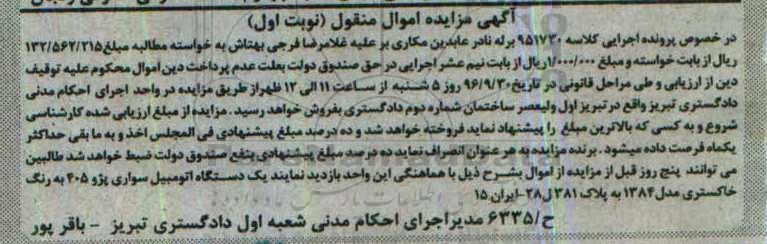 آگهی مزایده اموال منقول (نوبت اول)
در خصوص پرونده اجرایی کلاسه ۹۵۱۷۳۰ برله نادر عابدین مکاری بر علیه غلامرضا فرجی بهتاش به خواسته مطالبه مبلغ ۱۳۲/۵۶۲/۲۱۵
ریال از بابت خواسته و مبلغ ۱/۰۰۰/۰۰۰ریال از بابت نیم عشر اجرایی در حق صندوق دولت بعلت عدم پرداخت دین اموال محکوم علیه توقیف
دین از ارزیابی و طی مراحل قانونی در تاریخ ۹۶/۹/۳۰ روز ۵ شنبه از ساعت ۱۱ الی ۱۲ ظهر از طریق مزایده در واحد اجرای احکام مدنی
دادگستری تبریز واقع در تبریز اول ولیعصر ساختمان شماره دوم دادگستری بفروش خواهد رسید . مزایده از مبلغ ارزیابی شده کارشناسی
شروع و به کسی که بالاترین مبلغ را پیشنهاد نماید فروخته خواهد شد و ده درصد مبلغ پیشنهادی فی المجلس اخذ و به ما بقی حداکثر
یکماه فرصت داده میشود . برنده مزایده به هر عنوان انصراف نماید ده درصد مبلغ پیشنهادی بنفع صندوق دولت ضبط خواهد شد طالبین
می توانند پنج روز قبل از مزایده از اموال بشرح ذیل با هماهنگی این واحد بازدید نمایند یک دستگاه اتومبیل سواری پژو ۴۰۵ به رنگ
خاکستری مدل ۱۳۸۴ به پلاک ۳۸۱ ل ۲۸-ایران ۱۵
ح/۶۳۳۵ مدیر اجرای احکام مدنی شعبه اول دادگستری تبریز - باقر پور